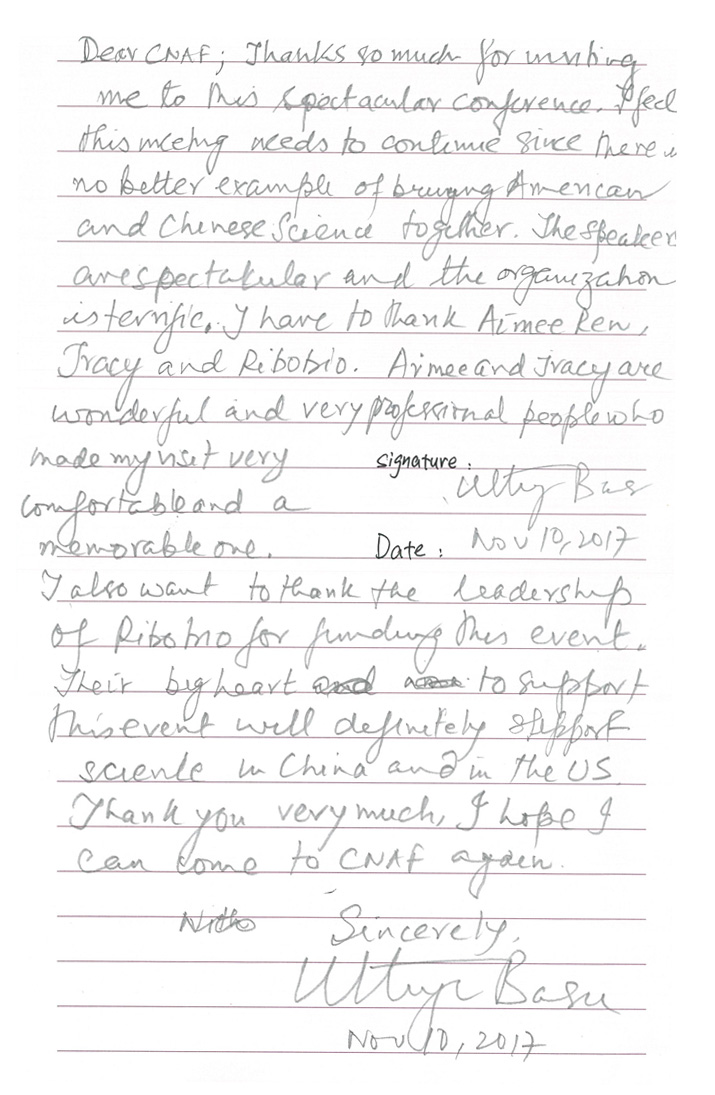 Dear CNAF; Thanks so much for inviting
me to this spectacular conference. I feel
this meeting needs to continue since there is
no better example of bringing American
and Chinese Science together. The speaker
are spectakular and the organization
is terrific. I have to thank Aimee Ren,
Tracy and Ribobio. Aimee and Tracy are
wonderful and very professional people who
made my visit very
signature:
comfortable and a
memorable one.
Date: Nov 10, 2017
I also want to thank the leadership
of Ribobio for funding this event.
Their big heart to support
this event will definitely support
science in China and in the US
Thank you very much, I hope I
can come to CNAF again.
Sincerely,
Basu
Nov 10, 2017